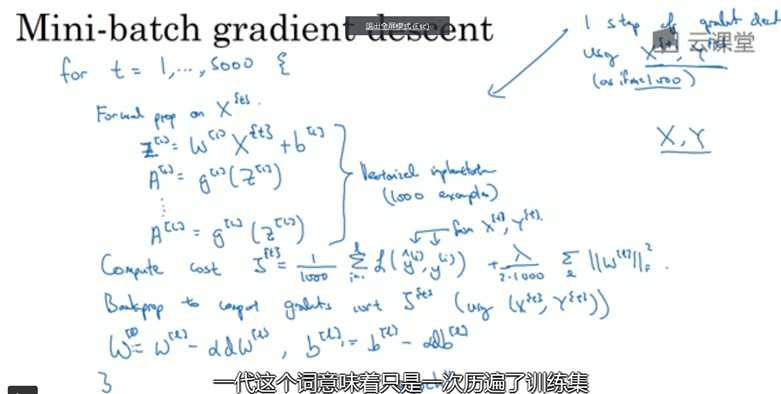 Mini-batch gradient descent
退出全屏模式 (Esc)
云课堂
1 step of gradient descent
using X^{t}, Y^{t}
(as if m=1000)
X, Y
for t = 1,...,5000 {
Forward prop on X^{t}.
Z^[1] = W^[1] X^{t} + b^[1]
A^[1] = g^[1](Z^[1])
⋮
A^[L] = g^[L](Z^[L])
Vectorized implementation
(1000 examples)
from X^{t}, Y^{t}.
Compute cost J^{t} = 1/1000 Σ L(ŷ^(i), y^(i)) + λ/2·1000 Σ_l ||W^[l]||_F^2.
Backprop to compute gradients wrt J^{t} (using (X^{t}, Y^{t}))
W^[l] = W^[l] - αdW^[l], b^[l] = b^[l] - αdb^[l]
}
一代这个词意味着只是一次历遍了训练集